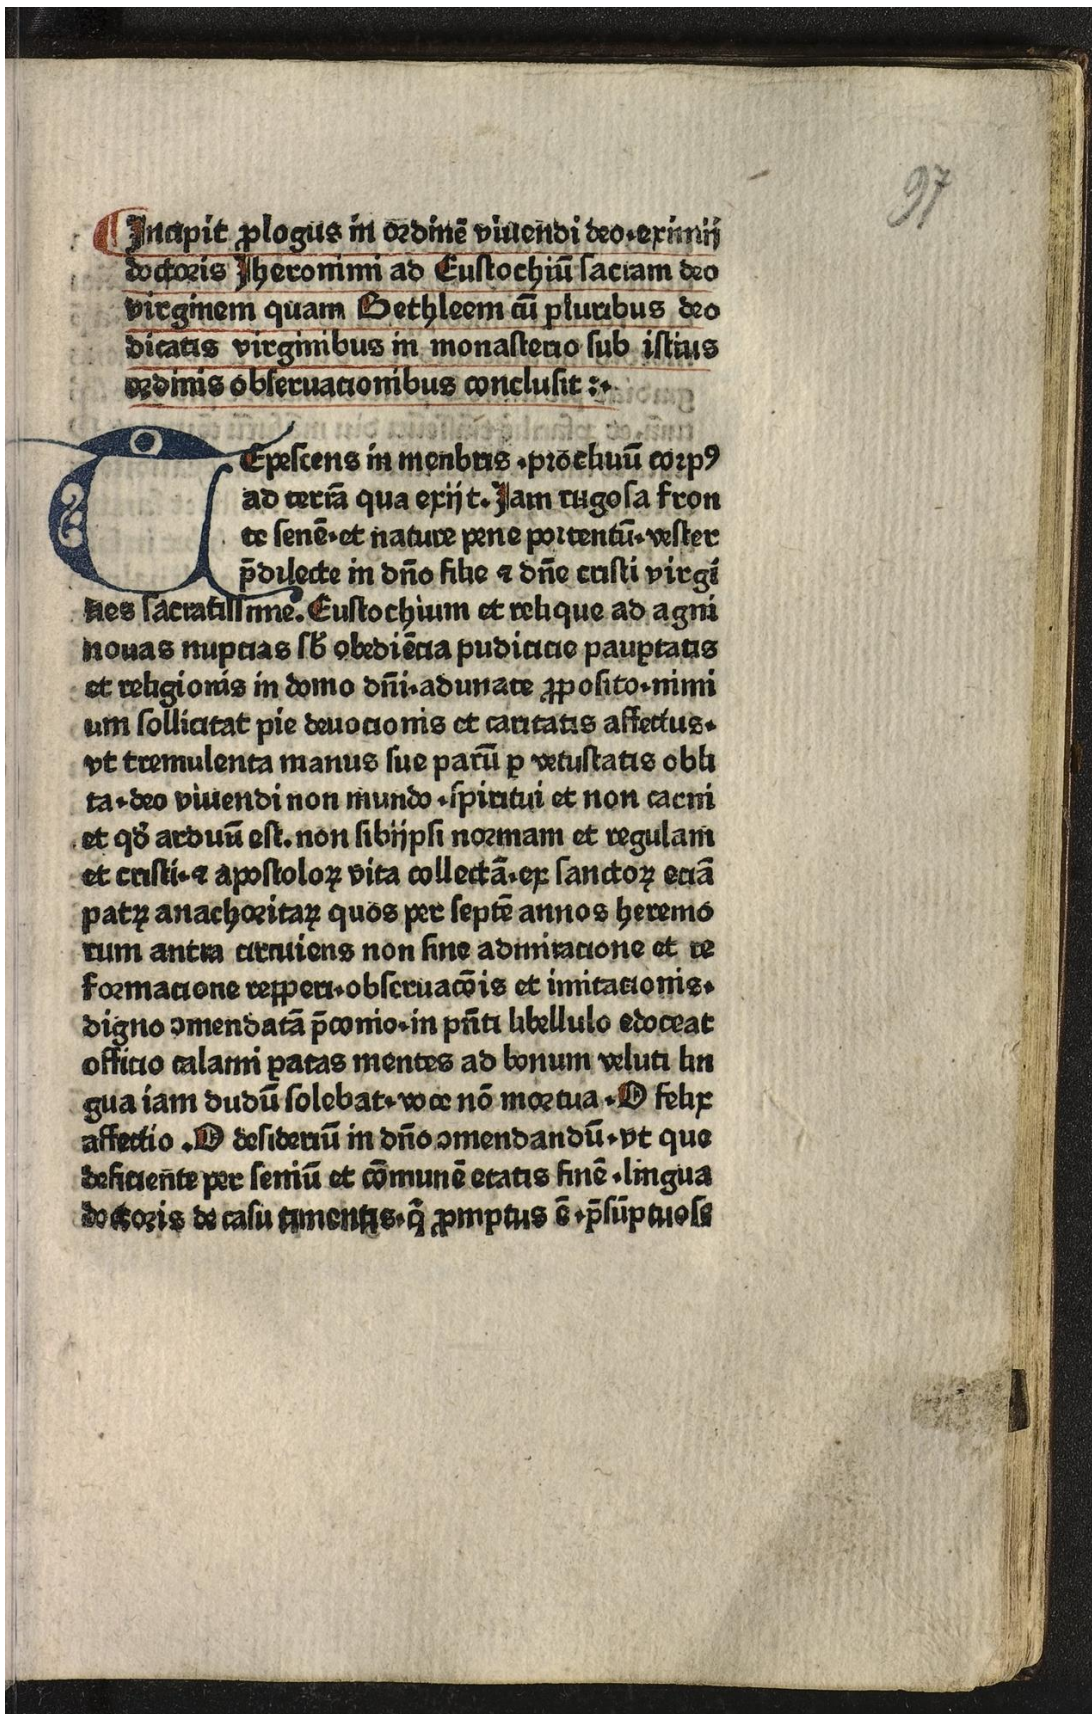 97
Incipit ꝓlogus in ordinē viuendi deo·eximij
doctoris Jheronimi ad Eustochiū sacram deo
virginem quam Bethleem cū pluribus deo
dicatis virginibus in monasterio sub istius
ordinis obseruacionibus conclusit :·
TEpescens in menbris ·procliuū corpꝰ
ad terrā qua exijt. Jam rugosa fron
te senē·et nature pene portentū·vester
p̄dilecte in dn̄o filie ⁊ dn̄e cristi virgī
nes sacratissime. Eustochium et relique ad agni
nouas nupcias sb̄ obediēcia pudicicie pauꝑtatis
et religionis in domo dn̄i·adunate ꝓposito·nimi
um sollicitat pie deuocionis et caritatis affectus·
vt tremulenta manus sue parū ꝑ vetustatis obli
ta·deo viuendi non mundo ·spiritui et non carni
et qd̄ arduū est. non sibijpsi normam et regulam
et cristi·⁊ apostoloꝝ vita collectā·ex sanctoꝝ eciā
patꝝ anachoritaꝝ quos per septē annos heremo
rum antra circuiens non sine admiracione et re
formacione reꝑperi·obseruacōis et imitacionis·
digno ꝯmendatā p̄conio·in pn̄ti libellulo edoceat
officio calami ꝑatas mentes ad bonum veluti lin
gua iam dudū solebat·voce nō mortua ·O felix
affectio .O desideriū in dn̄o ꝯmendandū·vt que
deficiente per seniū et cōmunē etatis finē ·lingua
doctoris de casu timentis·q̄ ꝓmptus ē ·p̄sūptuose